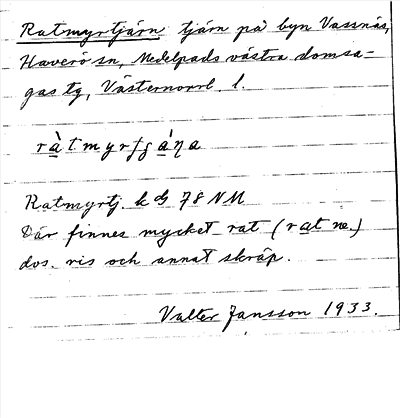 Ratmyrtjärn tjärn på byn Vassnäs,
Haverö sn, Medelpads västra domsa-
gas tg, Västernorrl. l.
ràtmyrʃgáŋa
Ratmyrtj. k 78 NM
Där finnes mycket rat (rat ne.)
dvs. ris och annat skräp.
Valter Jansson 1933.